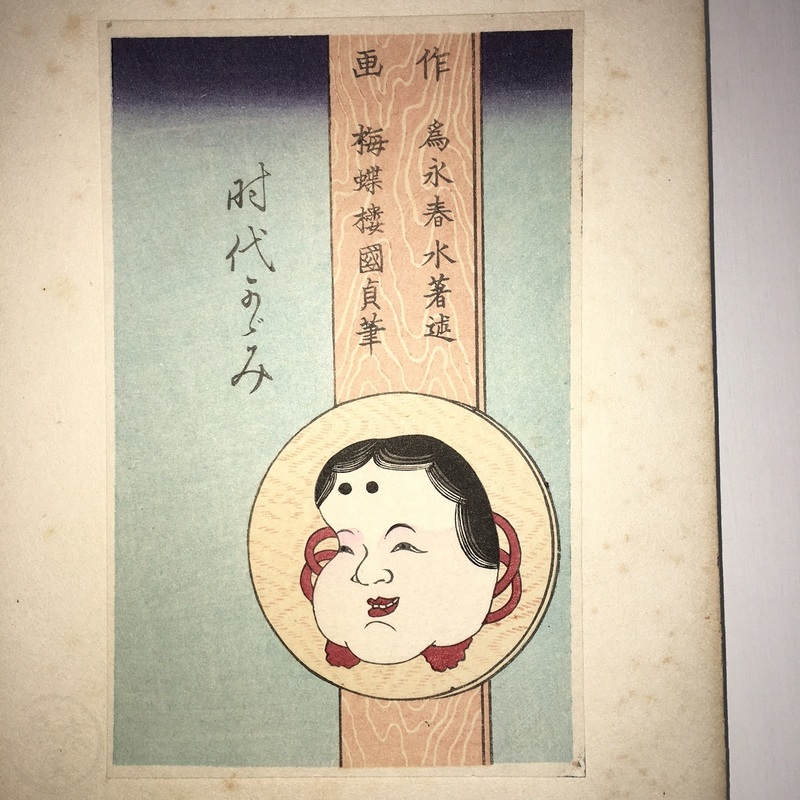 作 為永春水著述
画 梅蝶樓國貞筆
时代かゞみ